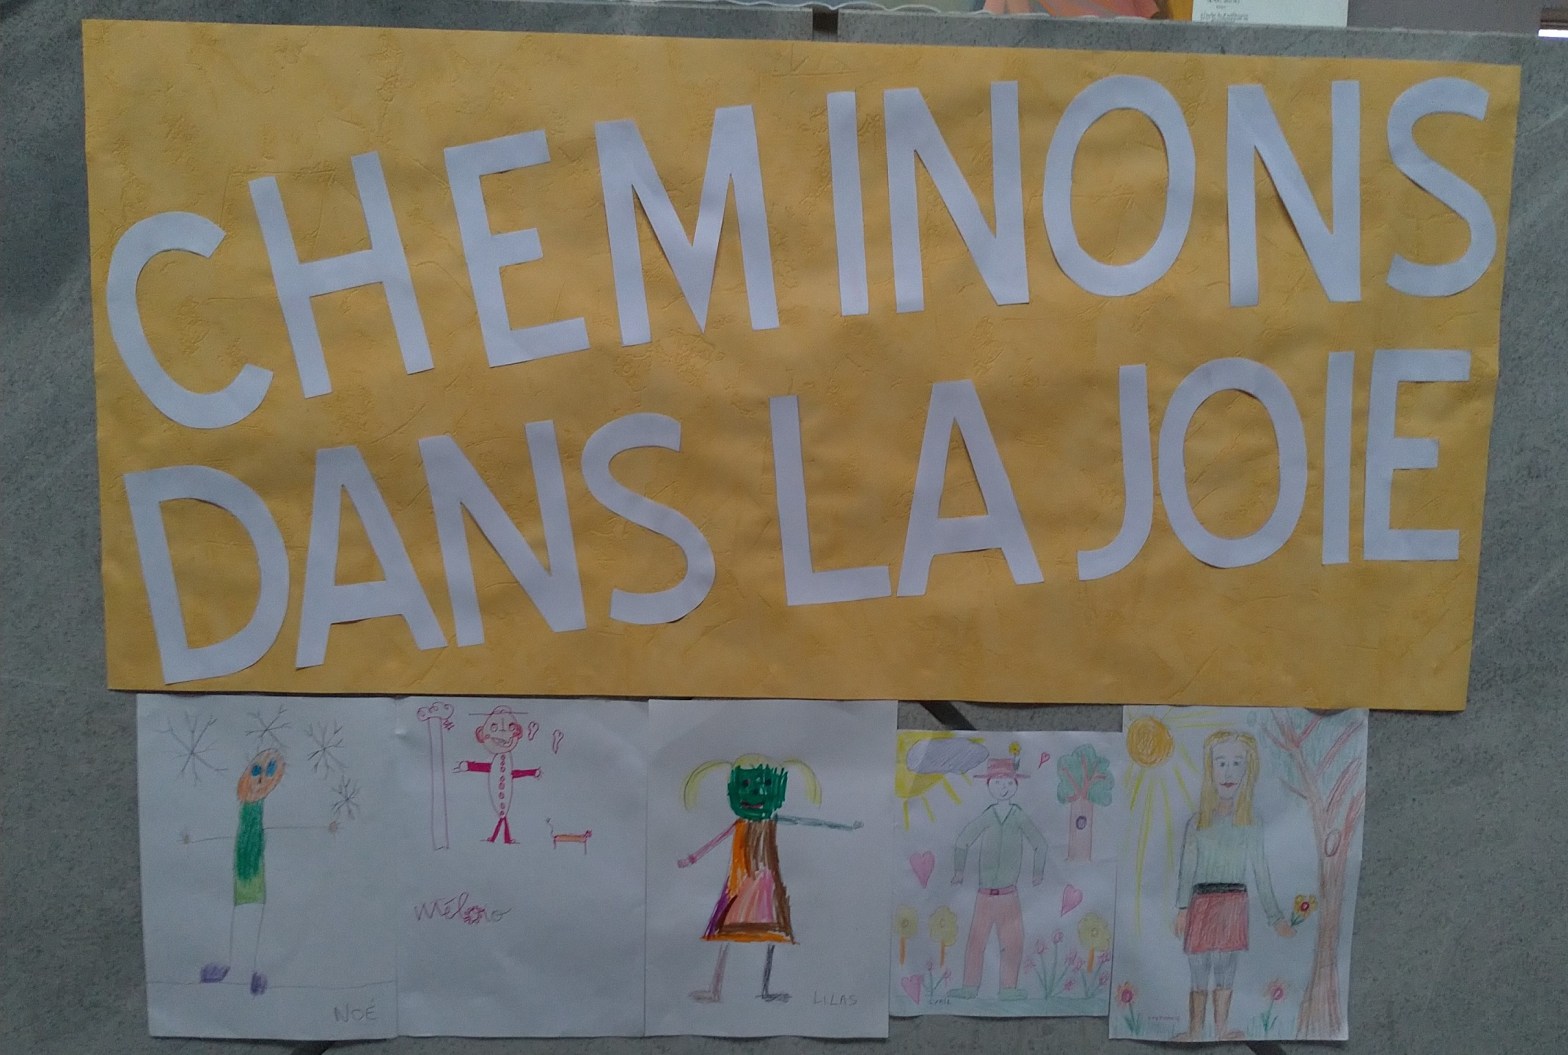 CHEMINONS
DANS LA JOIE
NOÉ
LILAS